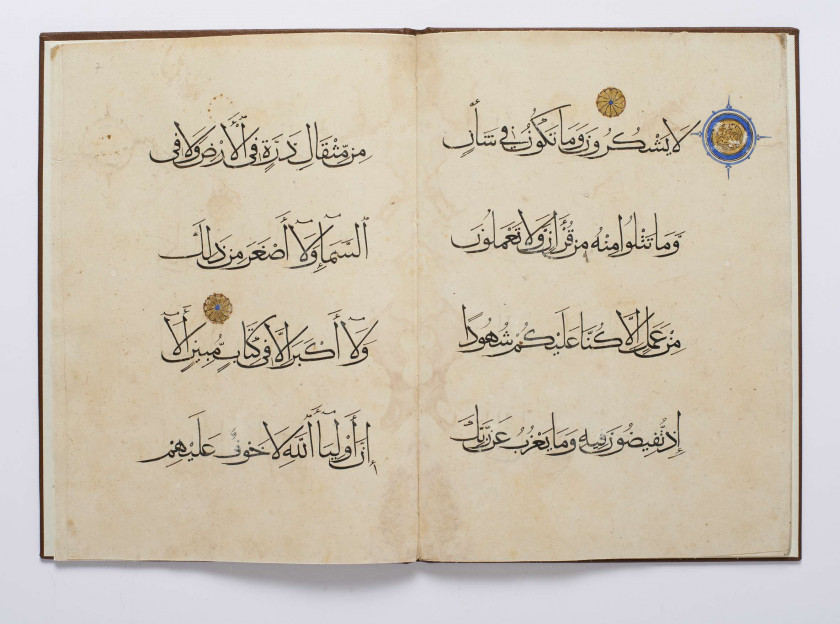 لَا يَشْكُرُونَ وَمَا تَكُونُ فِي شَأْنٍ
وَمَا تَتْلُوا مِنْهُ مِنْ قُرْأَنٍ وَلَا تَعْمَلُونَ
مِنْ عَمَلٍ إِلَّا كُنَّا عَلَيْكُمْ شُهُودًا
إِذْ تُفِيضُونَ فِيهِ وَمَا يَعْزُبُ عَنْ رَبِّكَ
مِنْ مِّثْقَالِ ذَرَّةٍ فِي الْأَرْضِ وَلَا فِي
السَّمَاءِ وَلَا أَصْغَرَ مِنْ ذَلِكَ
وَلَا أَكْبَرَ إِلَّا فِي كِتَابٍ مُّبِينٍ أَلَا
إِنَّ أَوْلِيَاءَ اللَّهِ لَا خَوْفٌ عَلَيْهِمْ